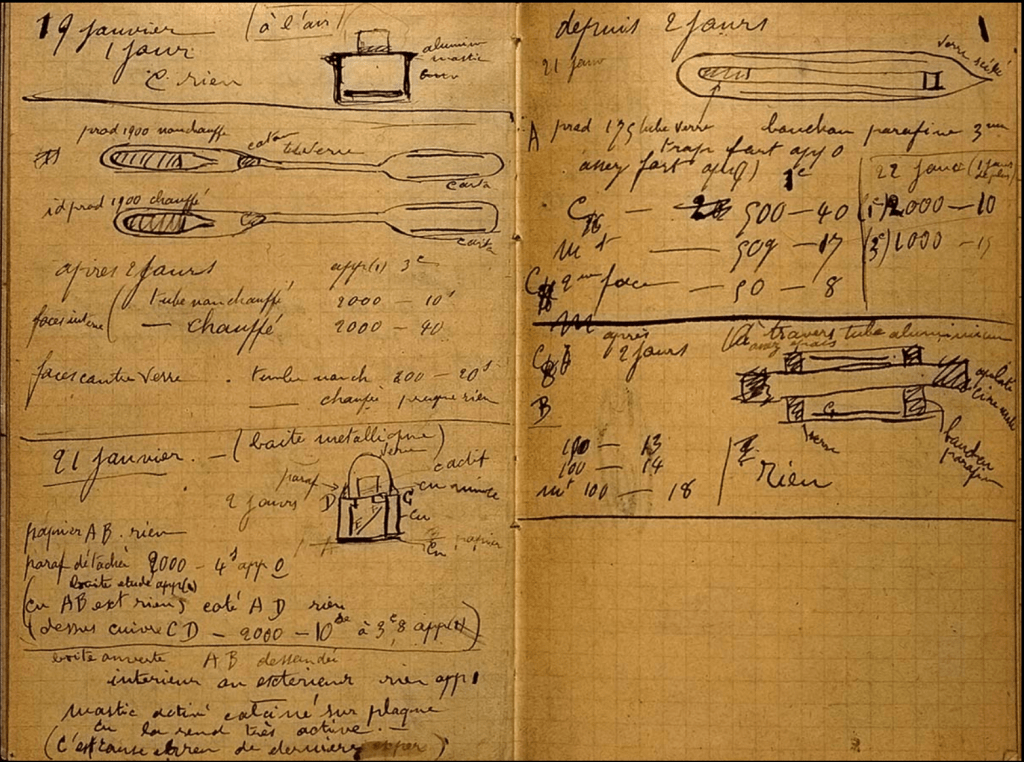 19 janvier (à l'air)
1 jour
C rien
aluminium
mastic
prod 1900 non chauffé
coton
tube verre
carta
id prod 1900 chauffé
C
carta
après 2 jours app(1) 3e
faces interne ( tube non chauffé 2000 — 10s
— chauffé 2000 — 40
faces contre verre . tube non ch 200 — 20s
— chauffé presque rien
21 janvier. — (boîte métallique)
verre
paraf
2 jours
D
G
cu mince
E F
cu
A
Cu papier
papier AB. rien
paraf détachée 2000 — 4s app 0
boite etude app(1)
(cu AB ext rien, coté AD rien
(dessus cuivre CD — 2000 — 10 à 3e,8 app(1))
boite ouverte AB dessoudée
intérieur ou extérieur rien app 1
mastic activé calciné sur plaque
cu la rend très active. —
(c'est cause erreur de dernière)
depuis 2 jours
1
21 janv
verre scellé
A prod 175 tube verre bouchon parafine 3mm
trop fort app 0
assez fort app(1) 1e
22 janv (1 jour de plus)
C — 500 — 40 (1e) 2000 — 10
16
mt — 509 — 17 (3e) 1000 — 15
C 2me face — 50 — 8
après
2 jours
(à travers tube aluminium
assez épais
C
8
B
verre
bouchon
parafin
100 — 13
100 — 14
mt 100 — 18
rien